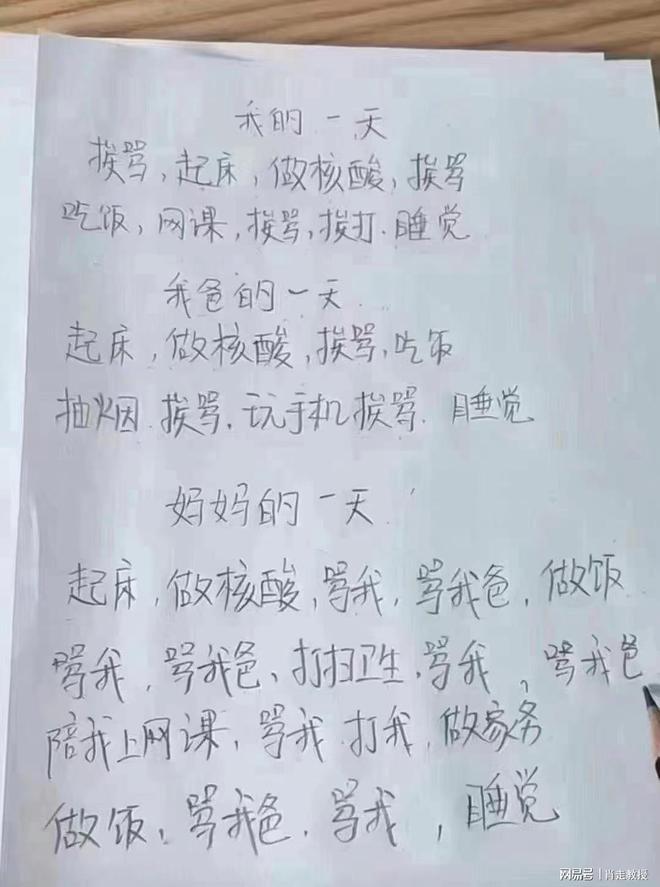 我的一天
挨骂,起床,做核酸,挨骂
吃饭,网课,挨骂,挨打.睡觉
我爸的一天
起床,做核酸,挨骂,吃饭
抽烟.挨骂.玩手机挨骂.睡觉
妈妈的一天
起床,做核酸,骂我,骂我爸,做饭
骂我,骂我爸,打扫卫生.骂我,骂我爸
陪我上网课,骂我.打我,做家务
做饭,骂我爸.骂我,睡觉
网易号|肖走教授